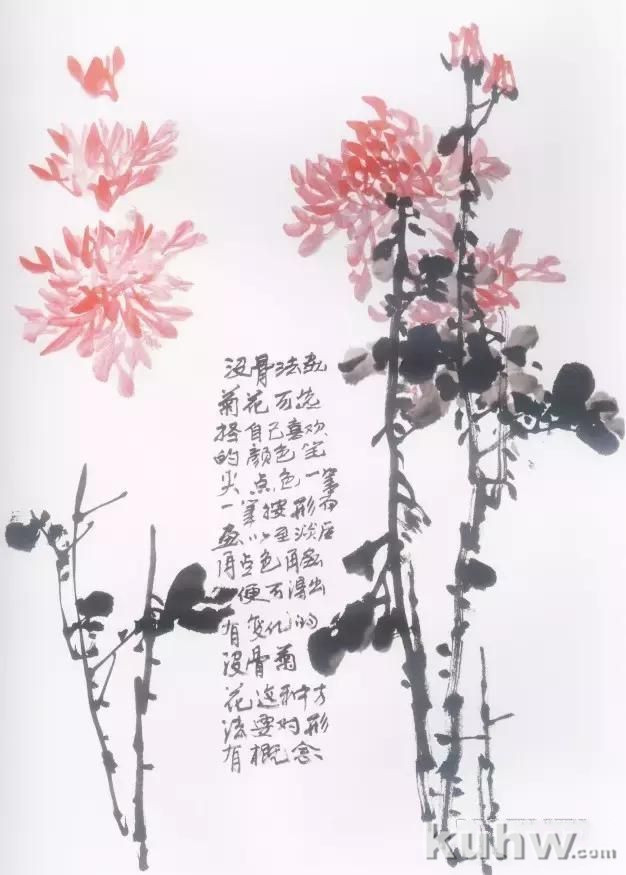 没骨法画
菊花可先
择自己喜欢
的颜色笔
尖点色一笔
一笔按形而
画以至淡后
再点色再画
便可得出
有变化的
没骨菊
花这种方
法要对形
有概念
kuhw.com